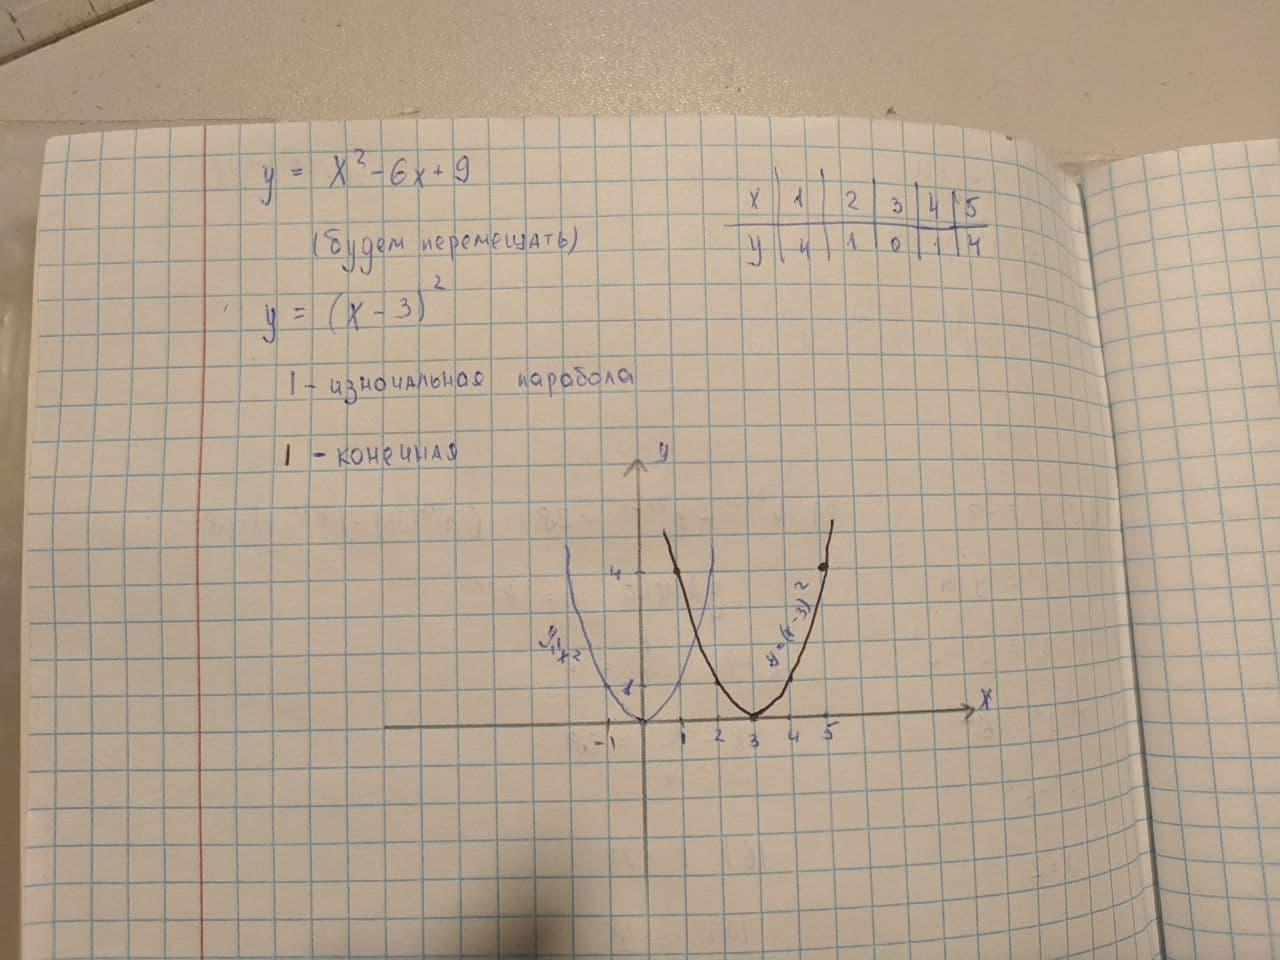 y = x² - 6x + 9
(будем перемещать)
y = (x - 3)²
x 1 2 3 4 5
y 4 1 0 1 4
1 - изночальная парабола
1 - конечная
y
4
1
y = x²
y = (x - 3)²
x
-1 1 2 3 4 5